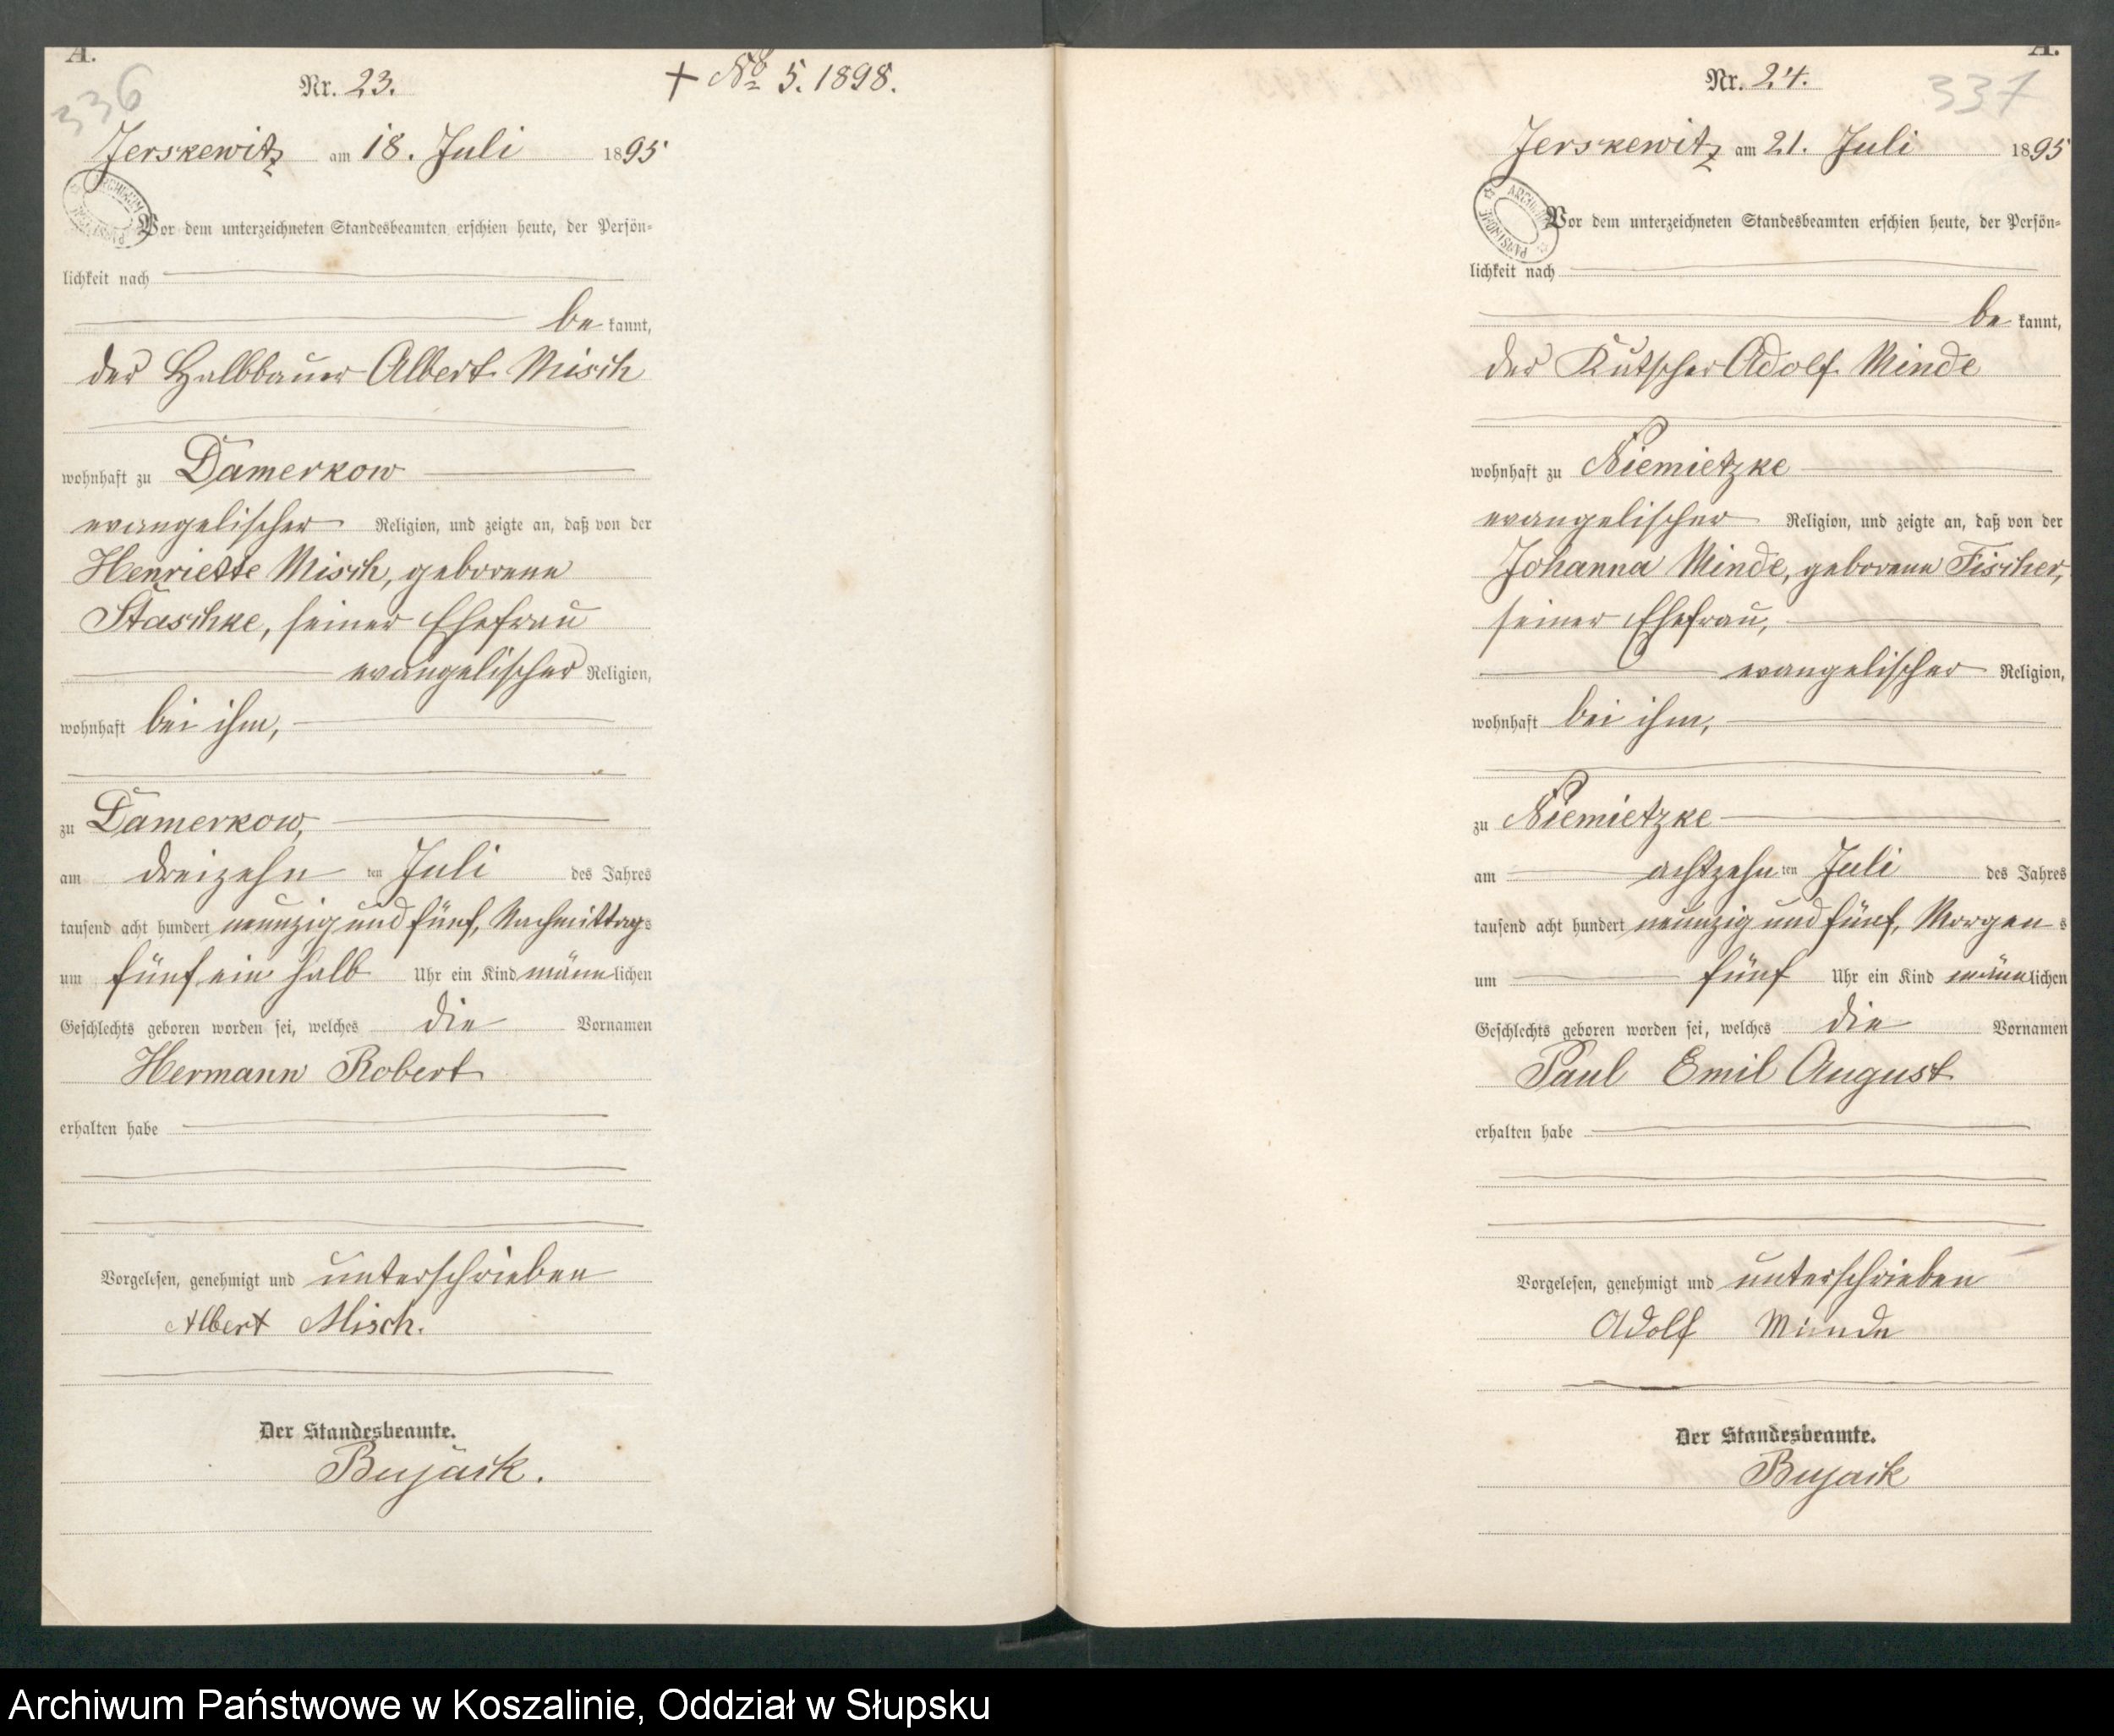 A.
336
Nr. 23.
+ No 5. 1898.
Jerskewitz am 18. Juli 1895
Vor dem unterzeichneten Standesbeamten erschien heute, der Persön-
lichkeit nach
be kannt,
der Halbbauer Albert Misch
wohnhaft zu Damerkow
evangelischer Religion, und zeigte an, daß von der
Henriette Misch, geborene
Staschke, seiner Ehefrau
evangelischer Religion,
wohnhaft bei ihm,
zu Damerkow,
am dreizehn ten Juli des Jahres
tausend acht hundert neunzig und fünf, Nachmittags
um fünf ein halb Uhr ein Kind männlichen
Geschlechts geboren worden sei, welches die Vornamen
Hermann Robert
erhalten habe
Vorgelesen, genehmigt und unterschrieben
Albert Misch.
Der Standesbeamte.
Bujack.
A.
337
Nr. 24.
Jerskewitz am 21. Juli 1895
ARCHIWUM PAŃSTWOWE
Vor dem unterzeichneten Standesbeamten erschien heute, der Persön-
lichkeit nach
be kannt,
der Kutscher Adolf Minde
wohnhaft zu Niemietzke
evangelischer Religion, und zeigte an, daß von der
Johanna Minde, geborene Fischer,
seiner Ehefrau,
evangelischer Religion,
wohnhaft bei ihm,
zu Niemietzke
am achtzehn ten Juli des Jahres
tausend acht hundert neunzig und fünf, Morgens
um fünf Uhr ein Kind männlichen
Geschlechts geboren worden sei, welches die Vornamen
Paul Emil August
erhalten habe
Vorgelesen, genehmigt und unterschrieben
Adolf Minde
Der Standesbeamte.
Bujack
Archiwum Państwowe w Koszalinie, Oddział w Słupsku